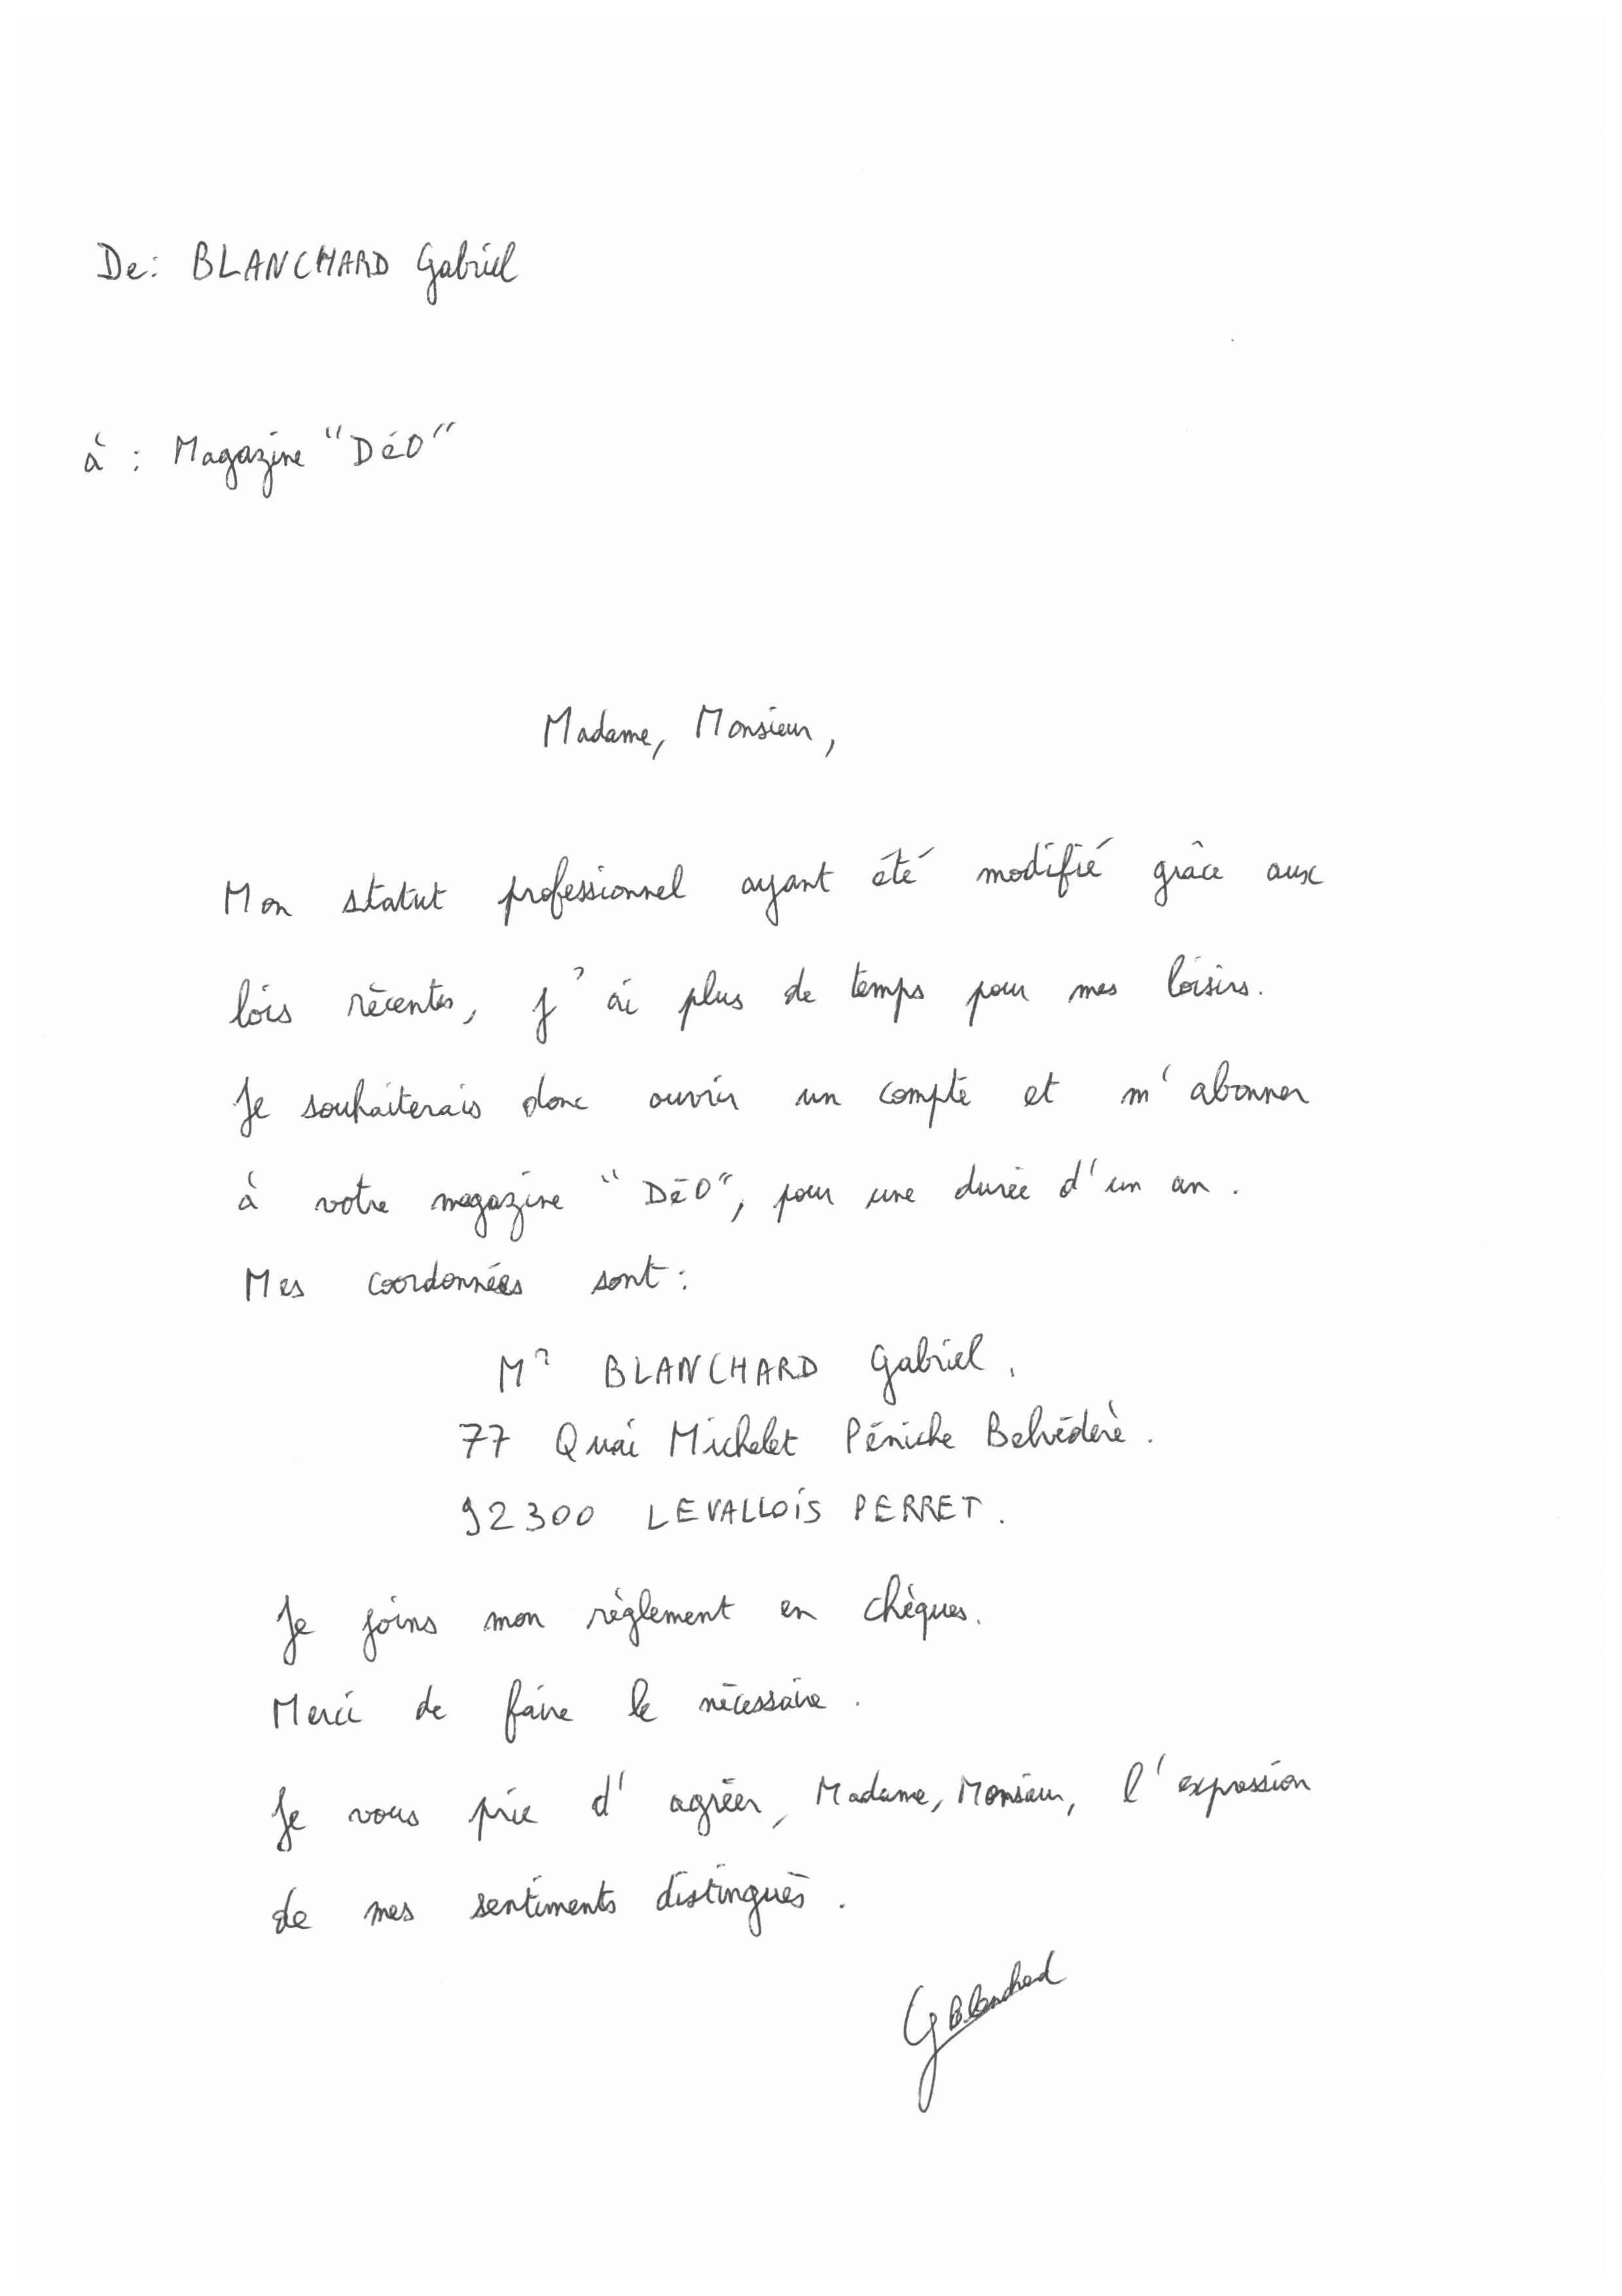 De: BLANCHARD Gabriel
à : Magazine "DéO"
Madame, Monsieur,
Mon statut professionnel ayant été modifié grâce aux
lois récentes, j'ai plus de temps pour mes loisirs.
Je souhaiterais donc ouvrir un compte et m'abonner
à votre magazine "DéO", pour une durée d'un an.
Mes coordonnées sont :
Mr BLANCHARD Gabriel.
77 Quai Michelet Péniche Belvédère.
92300 LEVALLOIS PERRET.
Je joins mon règlement en chèques.
Merci de faire le nécessaire.
Je vous prie d'agréer, Madame, Monsieur, l'expression
de mes sentiments distingués.
GBlanchard